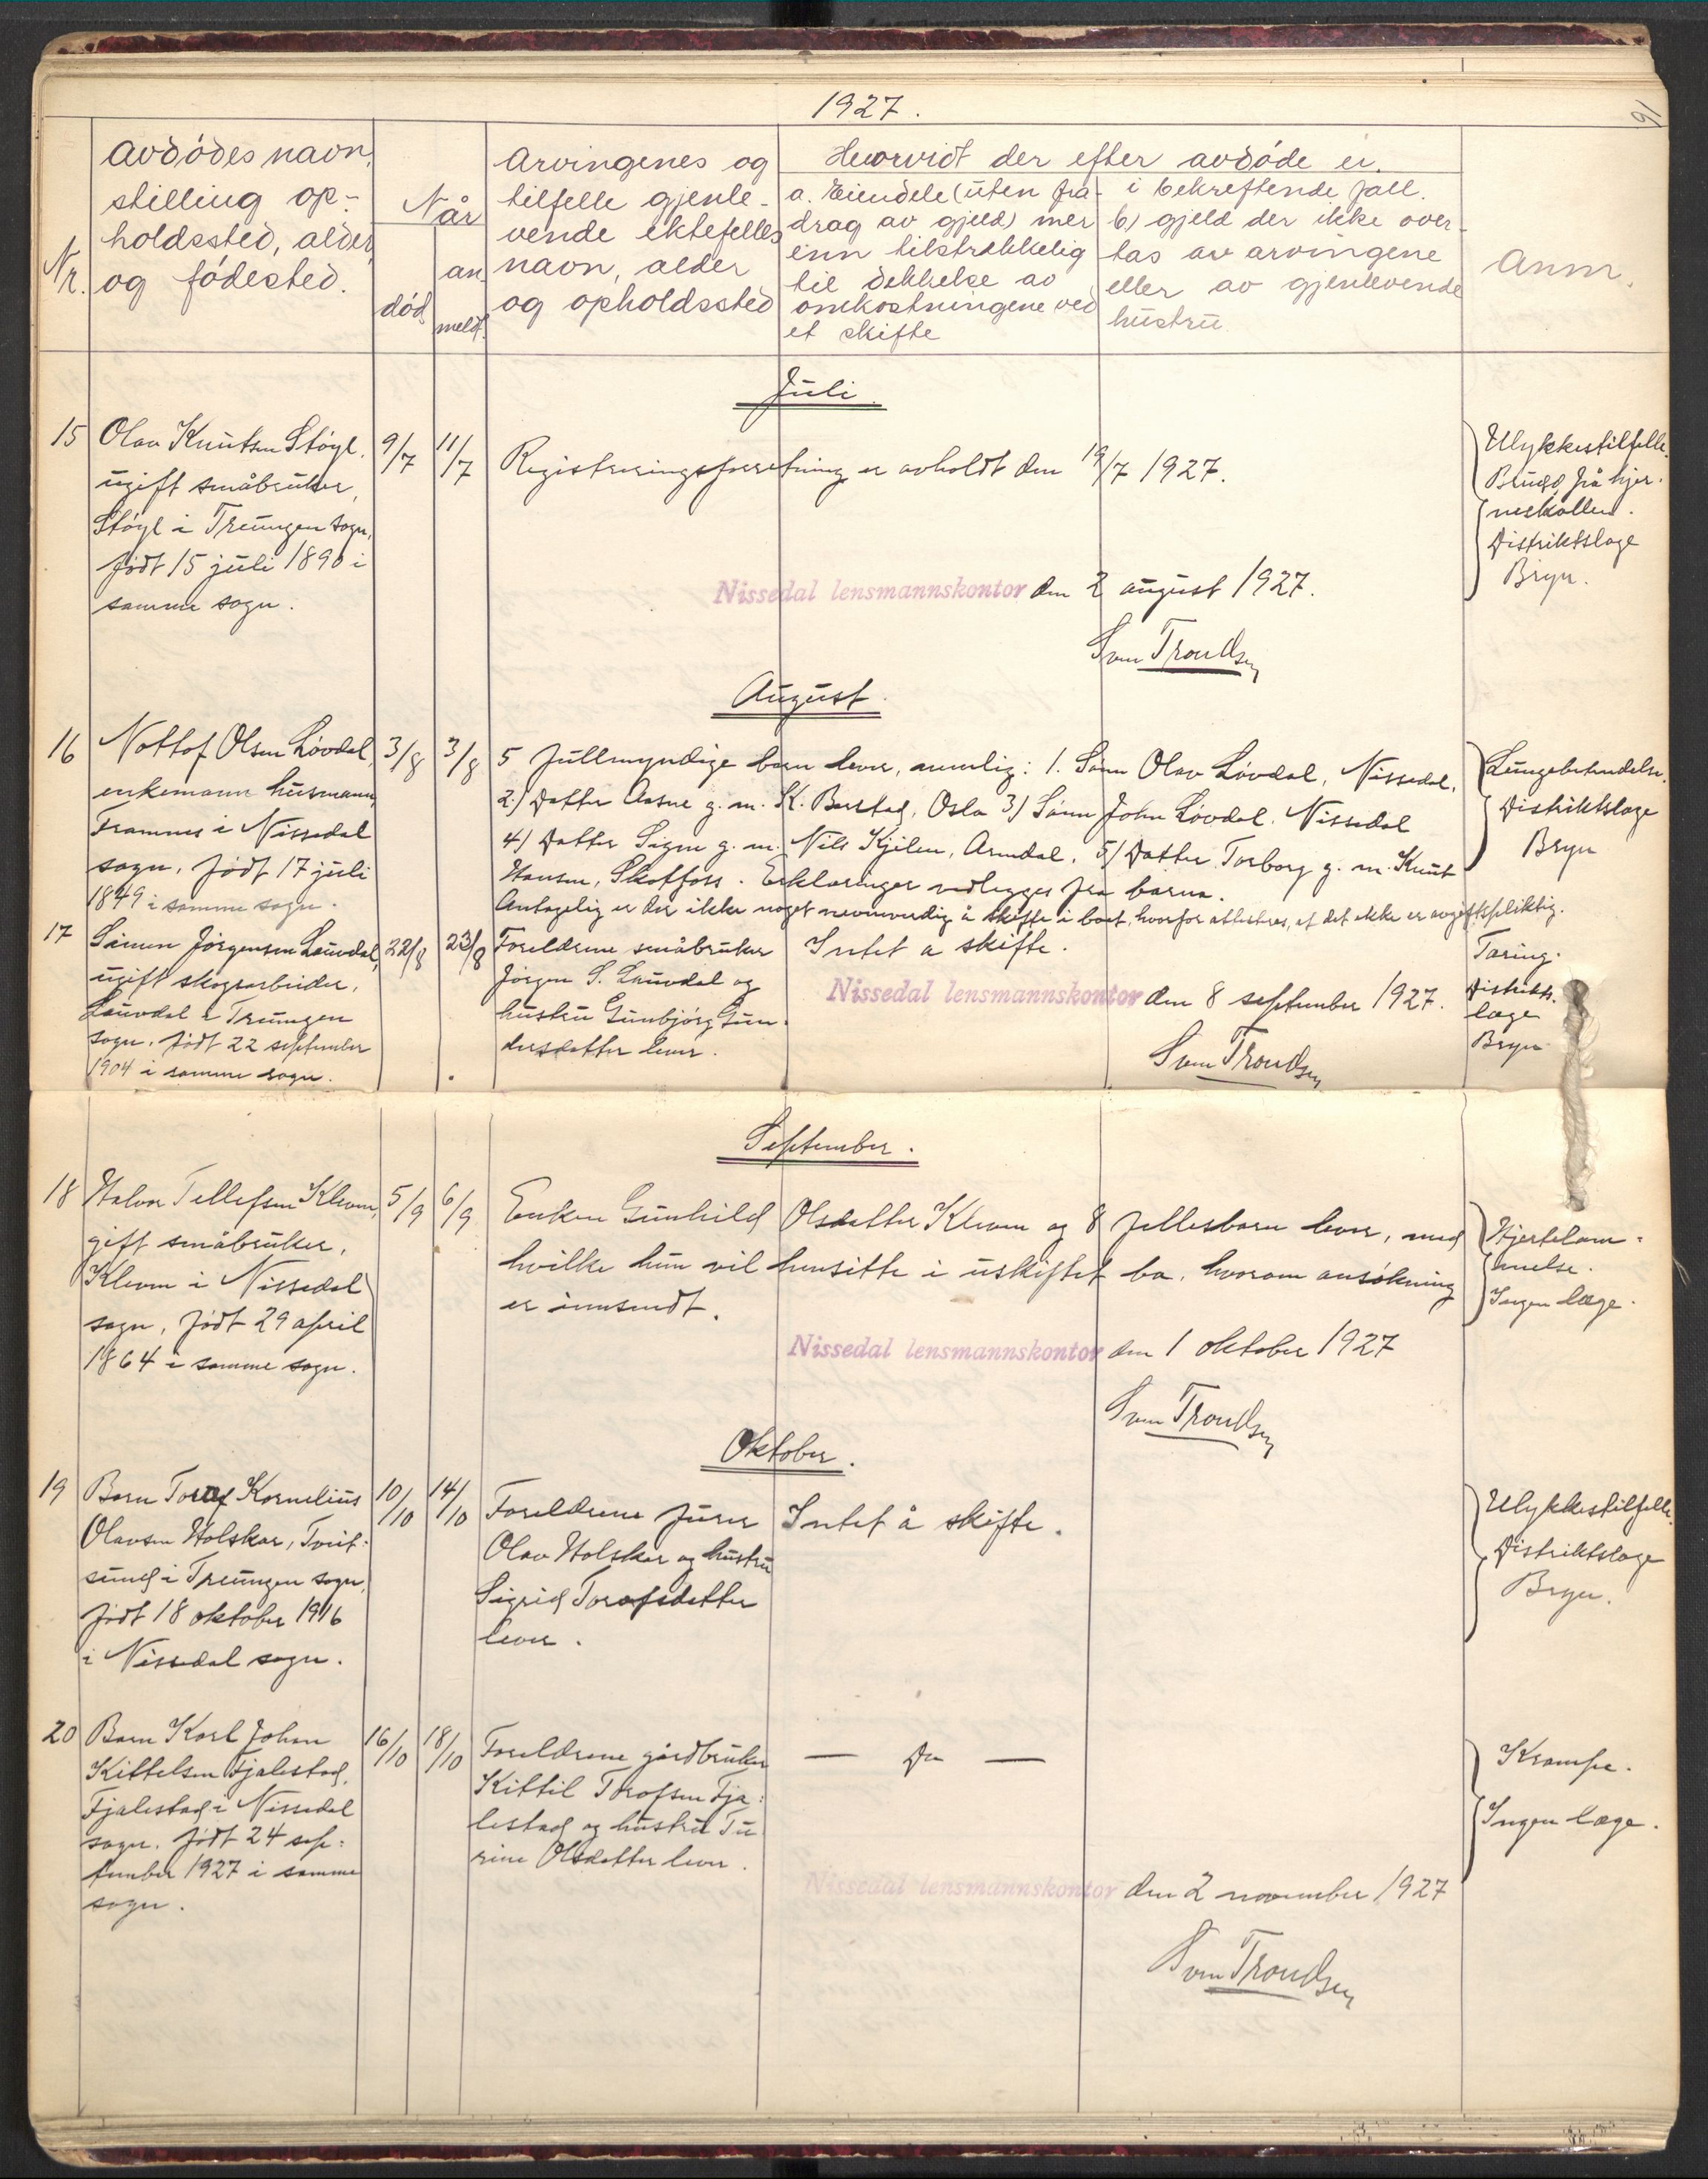 1927.
91
Nr.
Avdødes navn,
stilling op-
holdssted, alder
og fødested.
Når
død
an-
meldt.
Arvingenes og
tilfelle gjenle-
vende ektefelles
navn, alder
og opholdssted
Hvorvidt der efter avdøde er.
a. Eiendele (uten fra-
drag av gjeld) mer
enn tilstrekkelig
til dekkelse av
omkostningene ved
et skifte
i bekreftende fall.
b) gjeld der ikke over-
tas av arvingene
eller av gjenlevende
hustru
Anm.
Juli
15
Olav Knutsen Støyl,
ugift småbruker,
Støyl i Treungen sogn,
født 15 juli 1890 i
samme sogn.
9/7
11/7
Registreringsforretning er avholdt den 19/7 1927.
Ulykkestilfelle.
Brudd på hjer-
neskallen.
Distriktslæge
Bryn.
Nissedal lensmannskontor den 2 august 1927.
Sven Trondsen
August.
16
Nottof Olsen Løvdal,
enkemann husmann,
Framnes i Nissedal
sogn, født 17 juli
1849 i samme sogn.
3/8
3/8
5 fullmyndige barn lever, nemlig: 1. Sønn Olav Løvdal, Nissedal,
2.) Datter Aasne g. m. K. Barstad, Oslo 3) Sønn John Løvdal, Nissedal
4) Datter Signe g. m. Nils Kjilen, Arendal, 5) Datter Torborg g. m. Knut
Hansen, Skotfoss. Erklæringer vedlegges fra barna.
Antagelig er der ikke noget nevneverdig å skifte i boet, hvorfor attesteres, at det ikke er avgiftspliktig.
Lungebetendelse.
Distriktslæge
Bryn
17
Simen Jørgensen Lauvdal,
ugift skogsarbeider,
Lauvdal i Treungen
sogn, født 22 september
1904 i samme sogn.
22/8
23/8
Foreldrene småbruker
Jørgen S. Lauvdal og
hustru Gunbjørg Gun-
dersdatter lever.
Intet a skifte.
Tæring.
Distrikts-
læge
Bryn
Nissedal lensmannskontor den 8 september 1927.
Sven Trondsen
September.
18
Halvor Tellefsen Klevn,
gift småbruker,
Klevn i Nissedal
sogn, født 29 april
1864 i samme sogn.
5/9
6/9
Enken Gunhild Olsdatter Klevn og 8 fellesbarn lever, med
hvilke hun vil hensitte i uskiftet bo, hvorom ansøkning
er innsendt.
Hjertelam-
melse.
Ingen læge.
Nissedal lensmannskontor den 1 oktober 1927
Sven Trondsen
Oktober.
19
Barn Toraf Kornelius
Olavsen Holskar, Tveit-
sund i Treungen sogn,
født 18 oktober 1916
i Nissedal sogn.
10/10
14/10
Foreldrene
Olav Holskar og hustru
Sigrid Torafsdatter
lever.
Intet å skifte.
Ulykkestilfelle.
Distriktslæge
Bryn.
20
Barn Karl Johan
Kittelsen Fjalestad,
Fjalestad i Nissedal
sogn, født 24 sep-
tember 1927 i samme
sogn.
16/10
18/10
Foreldrene gårdbruker
Kittil Torafsen Fja-
lestad og hustru Tu-
rine Olsdatter lever.
— Do —
Krampe.
Ingen læge.
Nissedal lensmannskontor den 2 november 1927
Sven Trondsen